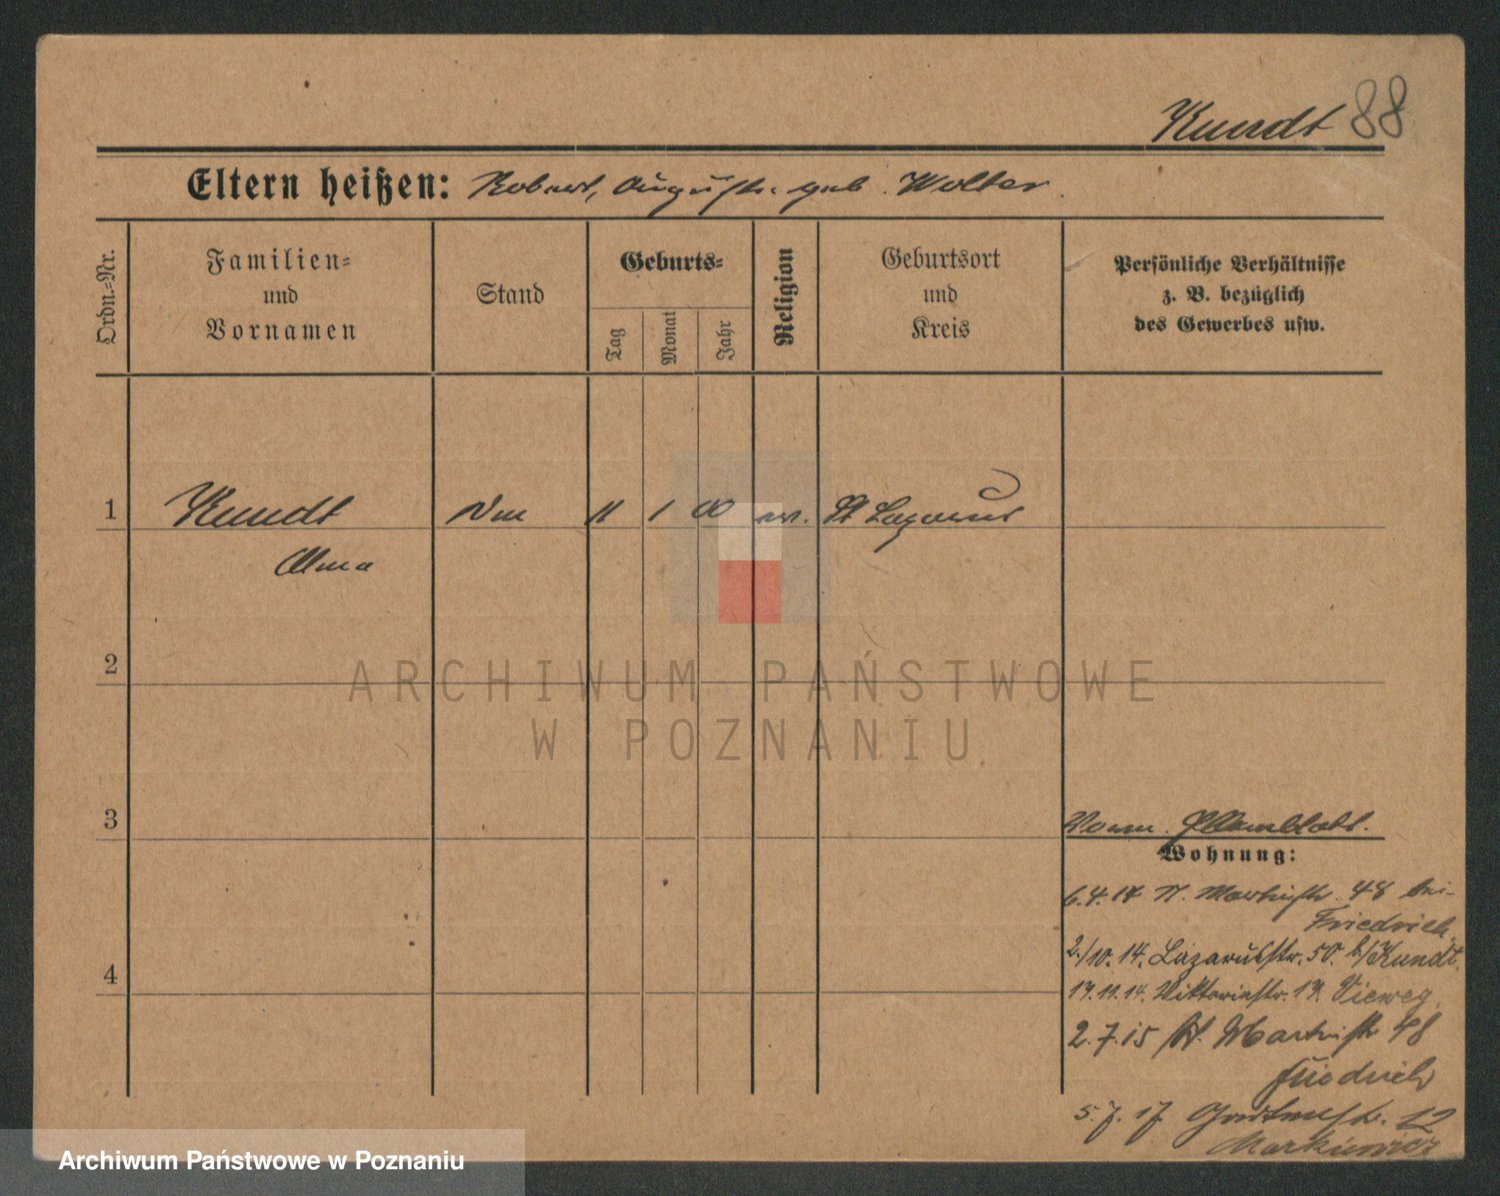 Kundt 88
Eltern heißen: Robert, geb. Wolter.
Ordn.-Nr.
Familien-
und
Vornamen
Stand
Geburts-
Tag
Monat
Jahr
Religion
Geburtsort
und
Kreis
Persönliche Verhältnisse
z. B. bezüglich
des Gewerbes usw.
1 Kundt 11 1 00 ev. St Lazarus
Alma
2
3
Wohnung:
6.4.14 St. Martinstr. 48 bei
Friedrich
2./10. 14. Lazarusstr. 50. b/Kundt.
Viktoriastr. Vieweg.
2.7.15 St. Martinstr 48
Friedrich
4
5.7.17 12
Markiewicz
ARCHIWUM PAŃSTWOWE
W POZNANIU
Archiwum Państwowe w Poznaniu